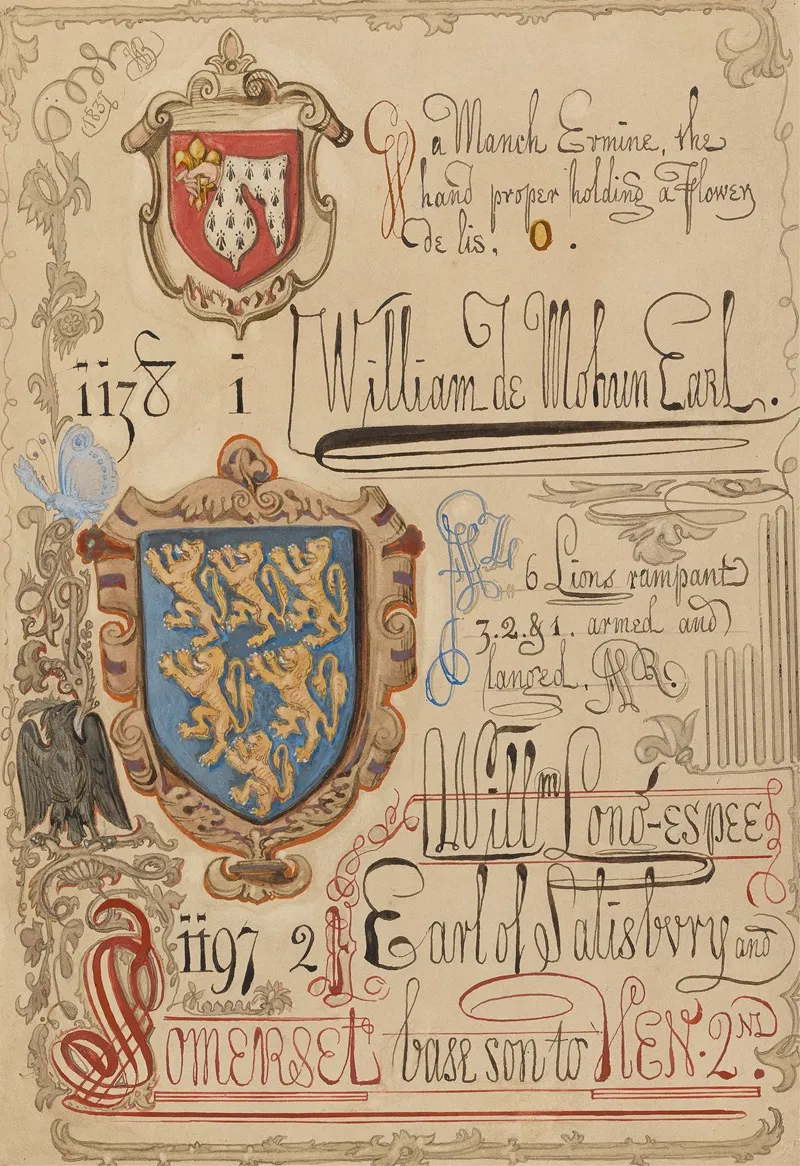 1837
G a Manch Ermine, the
hand proper holding a Flower
de lis. O.
1138 1 William de Mohun Earl.
AZ
6 Lions rampant
3.2.&1. armed and
langed,
Will^m Long-ESPEE
1197 2 Earl of Salisbvry and
SOMERSET base son to HEN. 2^ND.